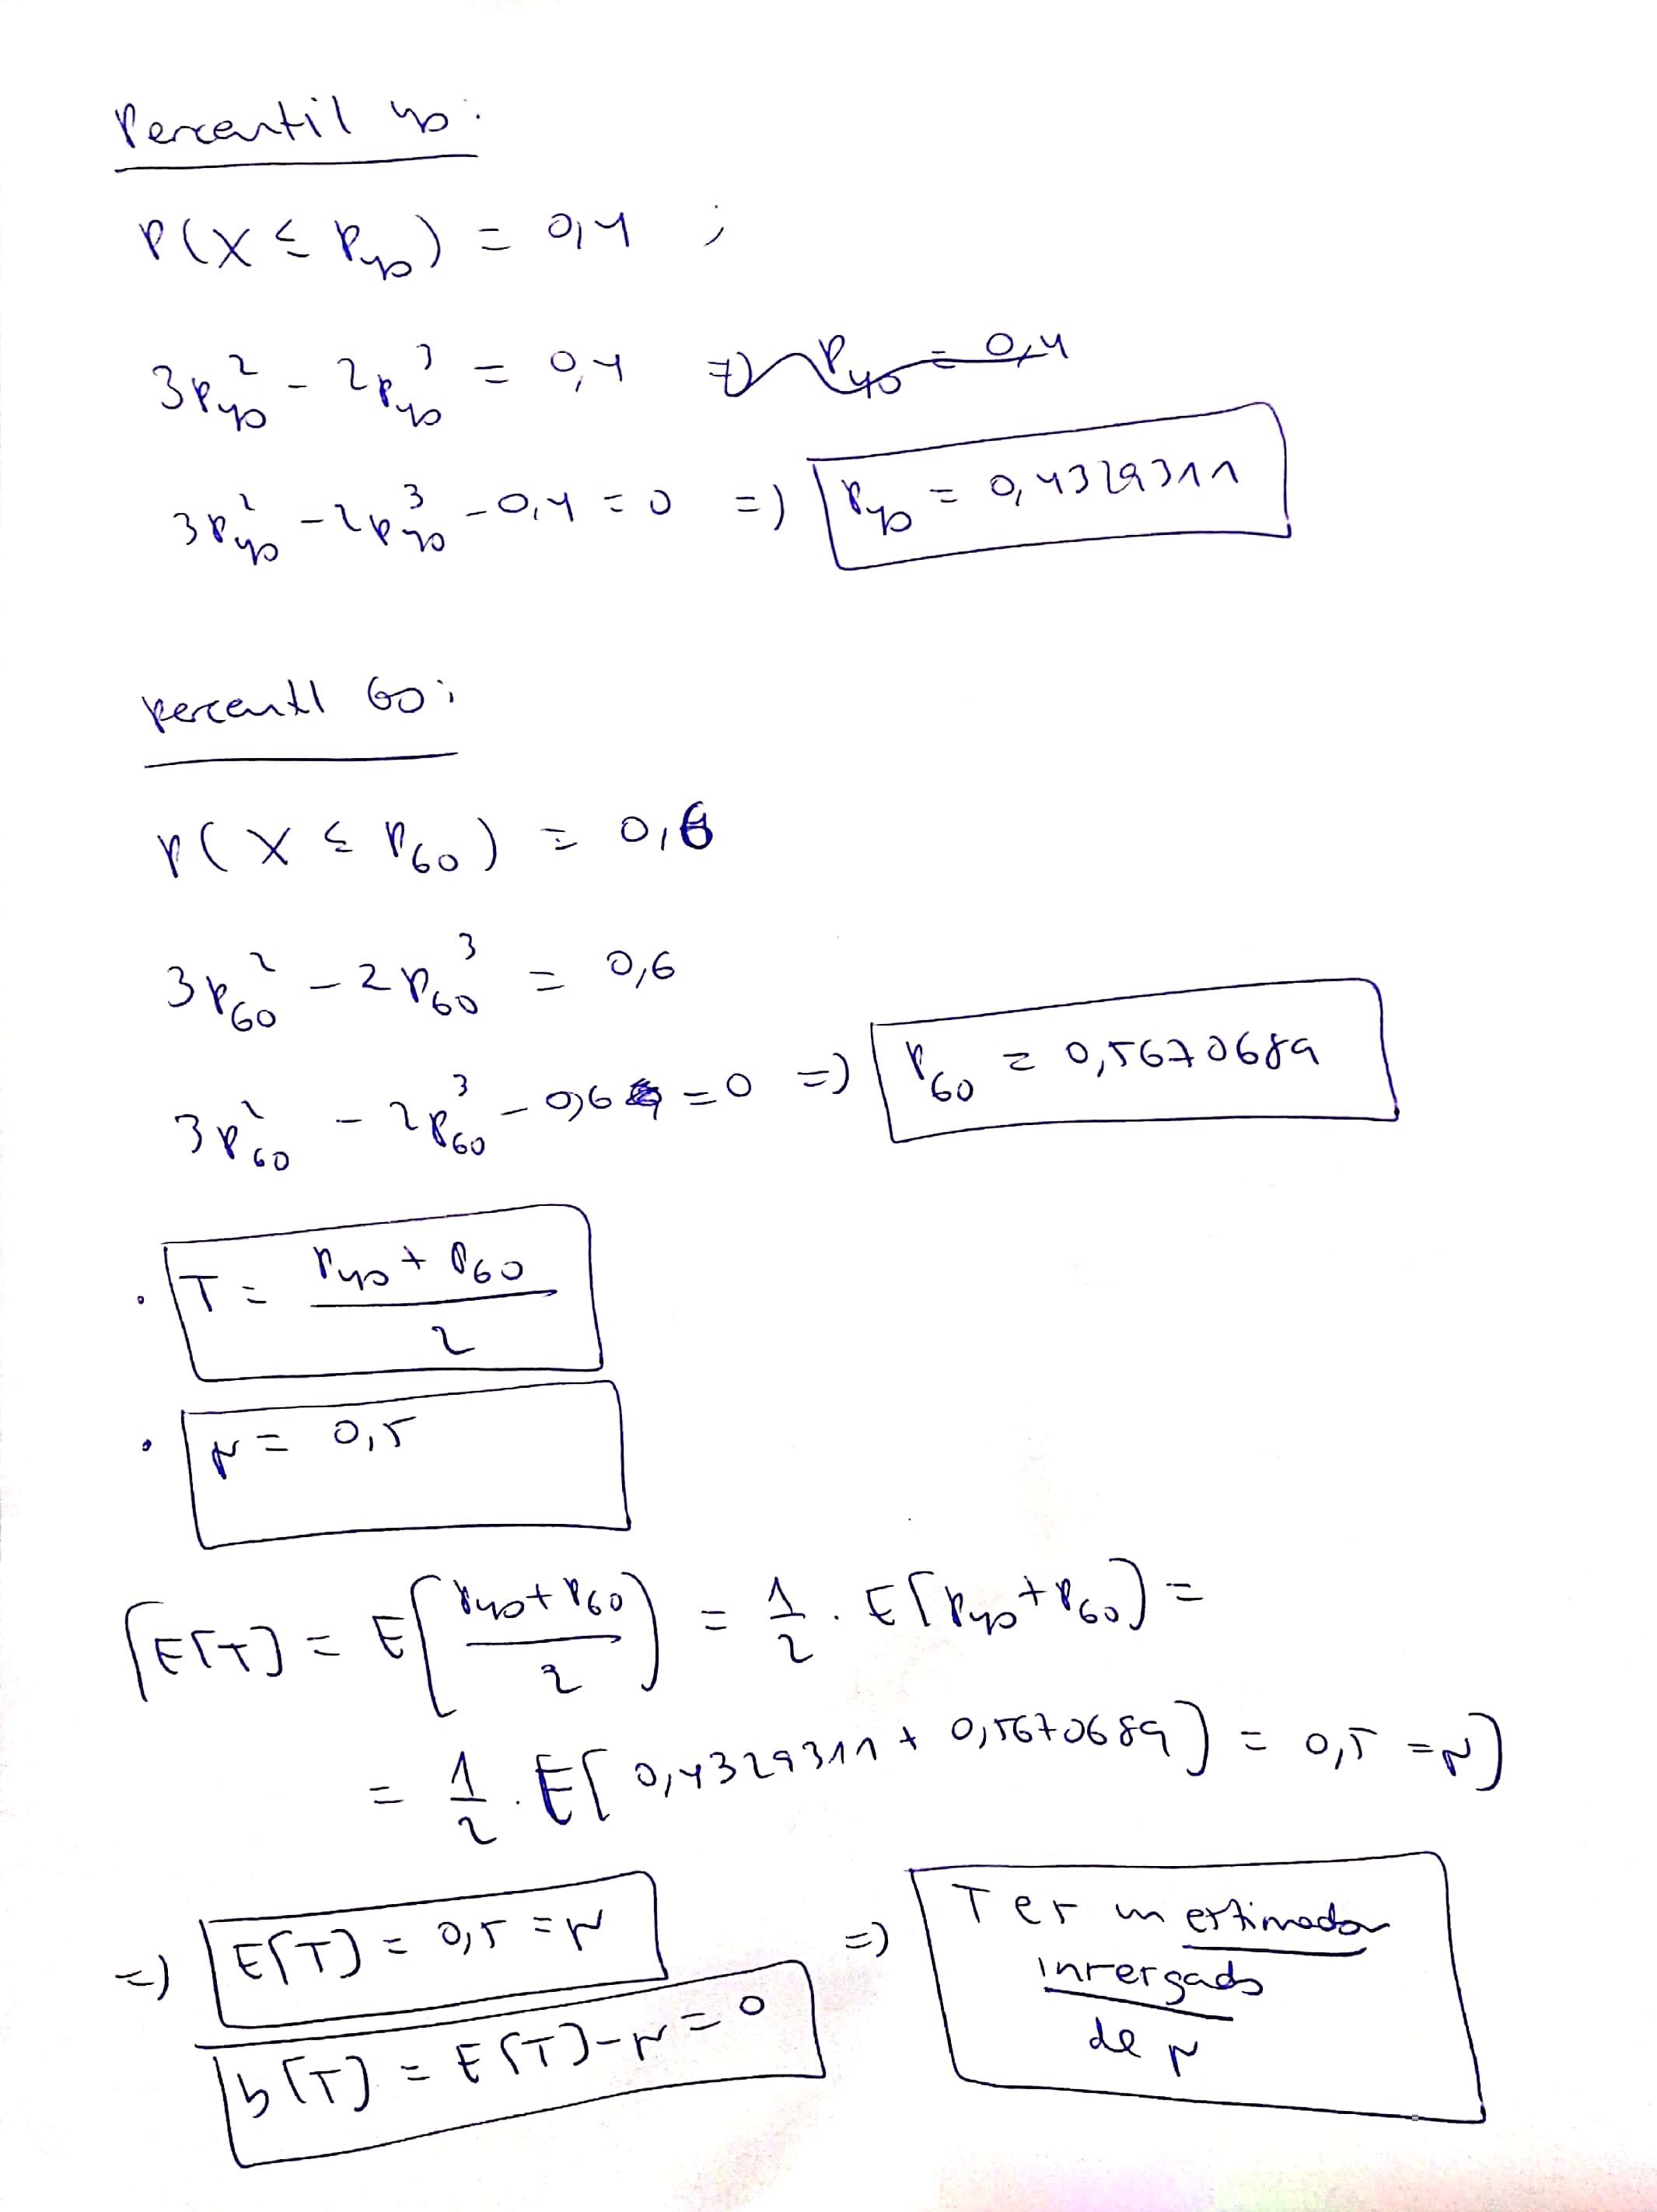 Percentil 40:
P(X ≤ P₄₀) = 0,4 ;
3p₄₀² - 2p₄₀³ = 0,4 => P₄₀ = 0,4
3p₄₀² - 2p₄₀³ - 0,4 = 0 => P₄₀ = 0,4329311
Percentil 60:
P(X ≤ P₆₀) = 0,6
3p₆₀² - 2p₆₀³ = 0,6
3p₆₀² - 2p₆₀³ - 0,6 = 0 => P₆₀ = 0,5670689
• T = (P₄₀ + P₆₀)/2
• μ = 0,5
[E[T] = E[(P₄₀ + P₆₀)/2] = 1/2 · E[P₄₀ + P₆₀] =
= 1/2 · E[0,4329311 + 0,5670689] = 0,5 = μ]
=> E[T] = 0,5 = μ => T es un estimador
insesgado
b[T] = E[T] - μ = 0
de μ